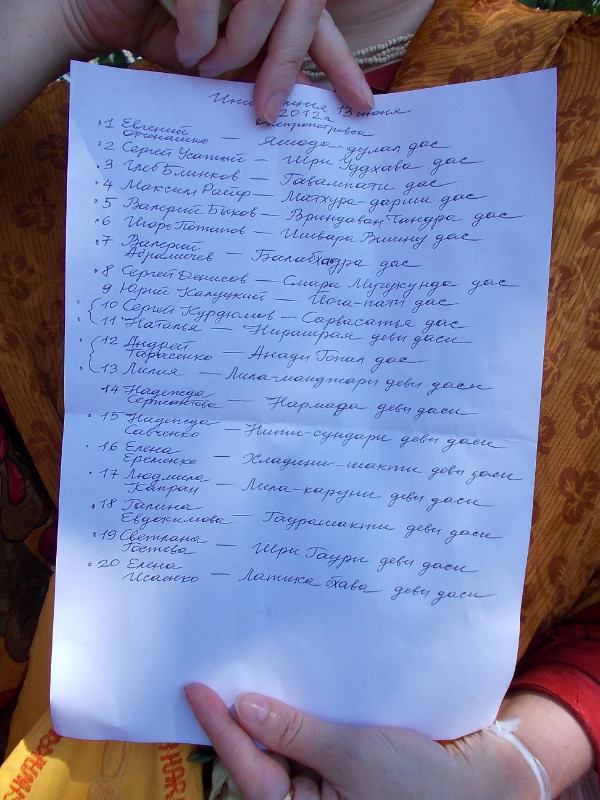 Инициация 13 июня
2012 г.
Днепропетровск
1 Евгений
Яшода-дулал дас
2 Сергей Усатый — Шри Уддхава дас
3 Глеб Блинков — Гавампати дас
4 Максим — Матхура-дарши дас
5 Валерий Быков — Вриндаван Чандра дас
6 Игорь — Ишвара Вишну дас
7 Валерий
Абрамичев — Балабхадра дас
8 Сергей Денисов — Смара Мучукунда дас
9 Юрий Калуцкий — Йога-пати дас
10 Сергей Курдюмов — Сарвасатья дас
11 Наталья — Нирашрая деви даси
12 Андрей
Тарасенко — Анади Гопал дас
13 Лилия — Лила-манджари деви даси
14 Надежда
Нармада деви даси
15 Надежда
Савченко — Нити-сундари деви даси
16 Елена
Еременко — Хладини-шакти деви даси
17 Людмила
Капран — Лила-каруни деви даси
18 Галина
Евдокимова — Гаурашакти деви даси
19 Светлана
Гостева — Шри Гаури деви даси
20 Елена
Исаенко — Латика бхава деви даси